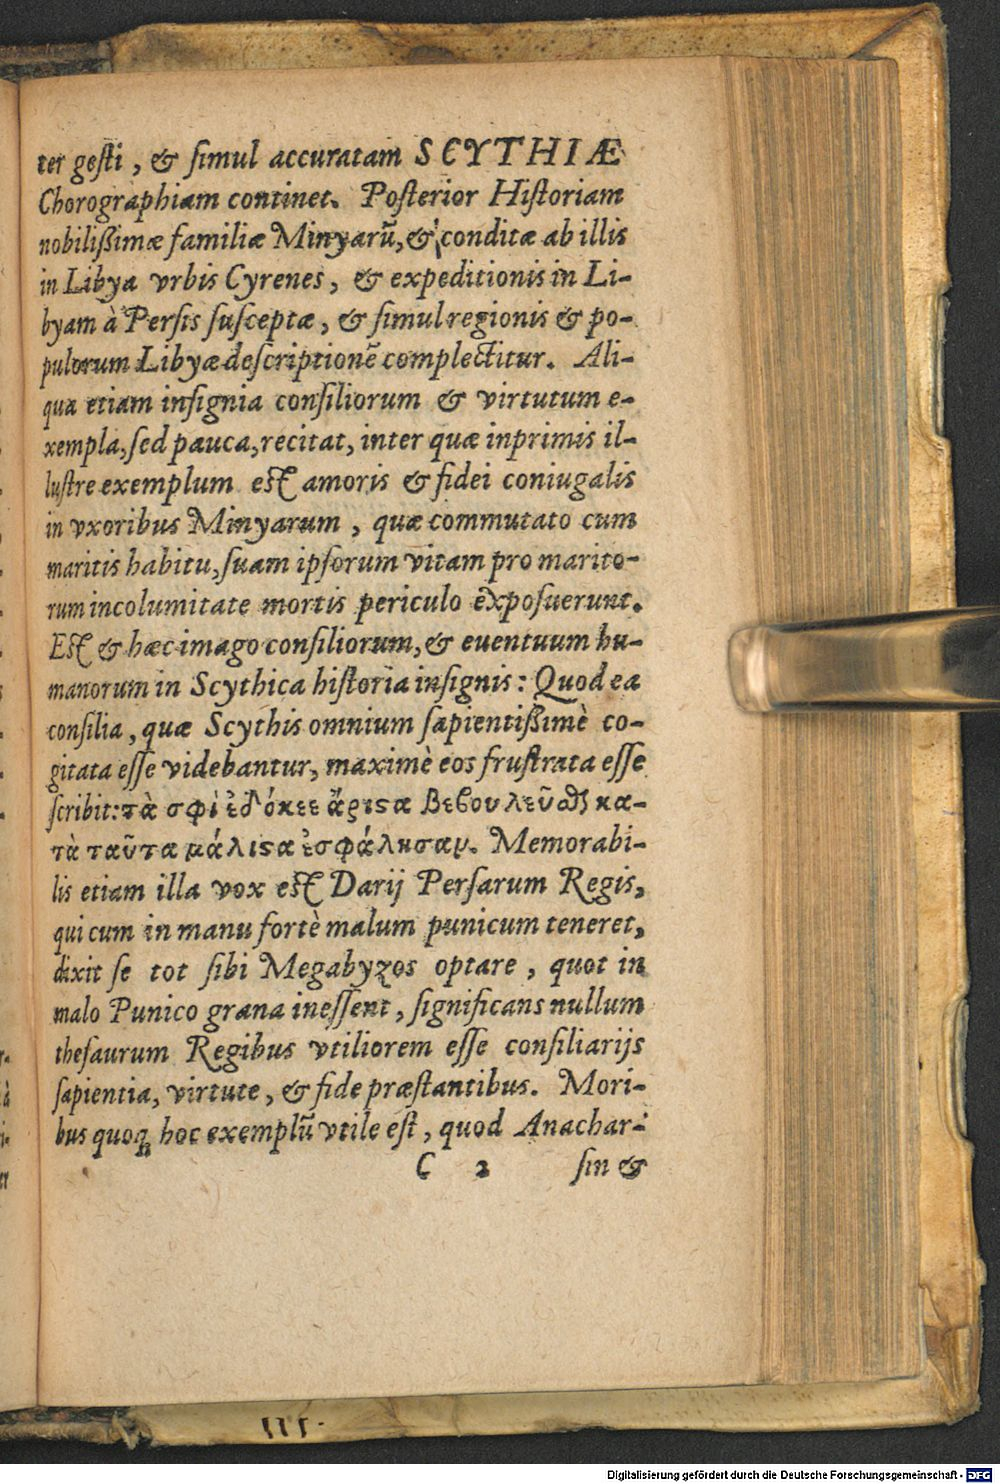 ter gesti, & simul accuratam SCYTHIÆ
Chorographiam continet. Posterior Historiam
nobilißimæ familiæ Minyarū, & conditæ ab illis
in Libya vrbis Cyrenes, & expeditionis in Li-
byam à Persis susceptæ, & simul regionis & po-
pulorum Libyæ descriptionē complectitur. Ali-
qua etiam insignia consiliorum & virtutum e-
xempla, sed pauca, recitat, inter quæ inprimis il-
lustre exemplum est amoris & fidei coniugalis
in vxoribus Minyarum, quæ commutato cum
maritis habitu, suam ipsorum vitam pro marito-
rum incolumitate mortis periculo exposuerunt.
Est & hæc imago consiliorum, & euentuum hu-
manorum in Scythica historia insignis: Quod ea
consilia, quæ Scythis omnium sapientißimè co-
gitata esse videbantur, maximè eos frustrata esse
scribit: τὰ σφὶ ἐδόκεε ἄριϛα βεβουλεῦσθαι κα-
τὰ ταῦτα μάλιϛα ἐσφάλησαν. Memorabi-
lis etiam illa vox est Darij Persarum Regis,
qui cum in manu fortè malum punicum teneret,
dixit se tot sibi Megabyzos optare, quot in
malo Punico grana inessent, significans nullum
thesaurum Regibus vtiliorem esse consiliarijs
sapientia, virtute, & fide præstantibus. Mori-
bus quoq; hoc exemplū vtile est, quod Anachar-
C 2 sin &
Digitalisierung gefördert durch die Deutsche Forschungsgemeinschaft - DFG